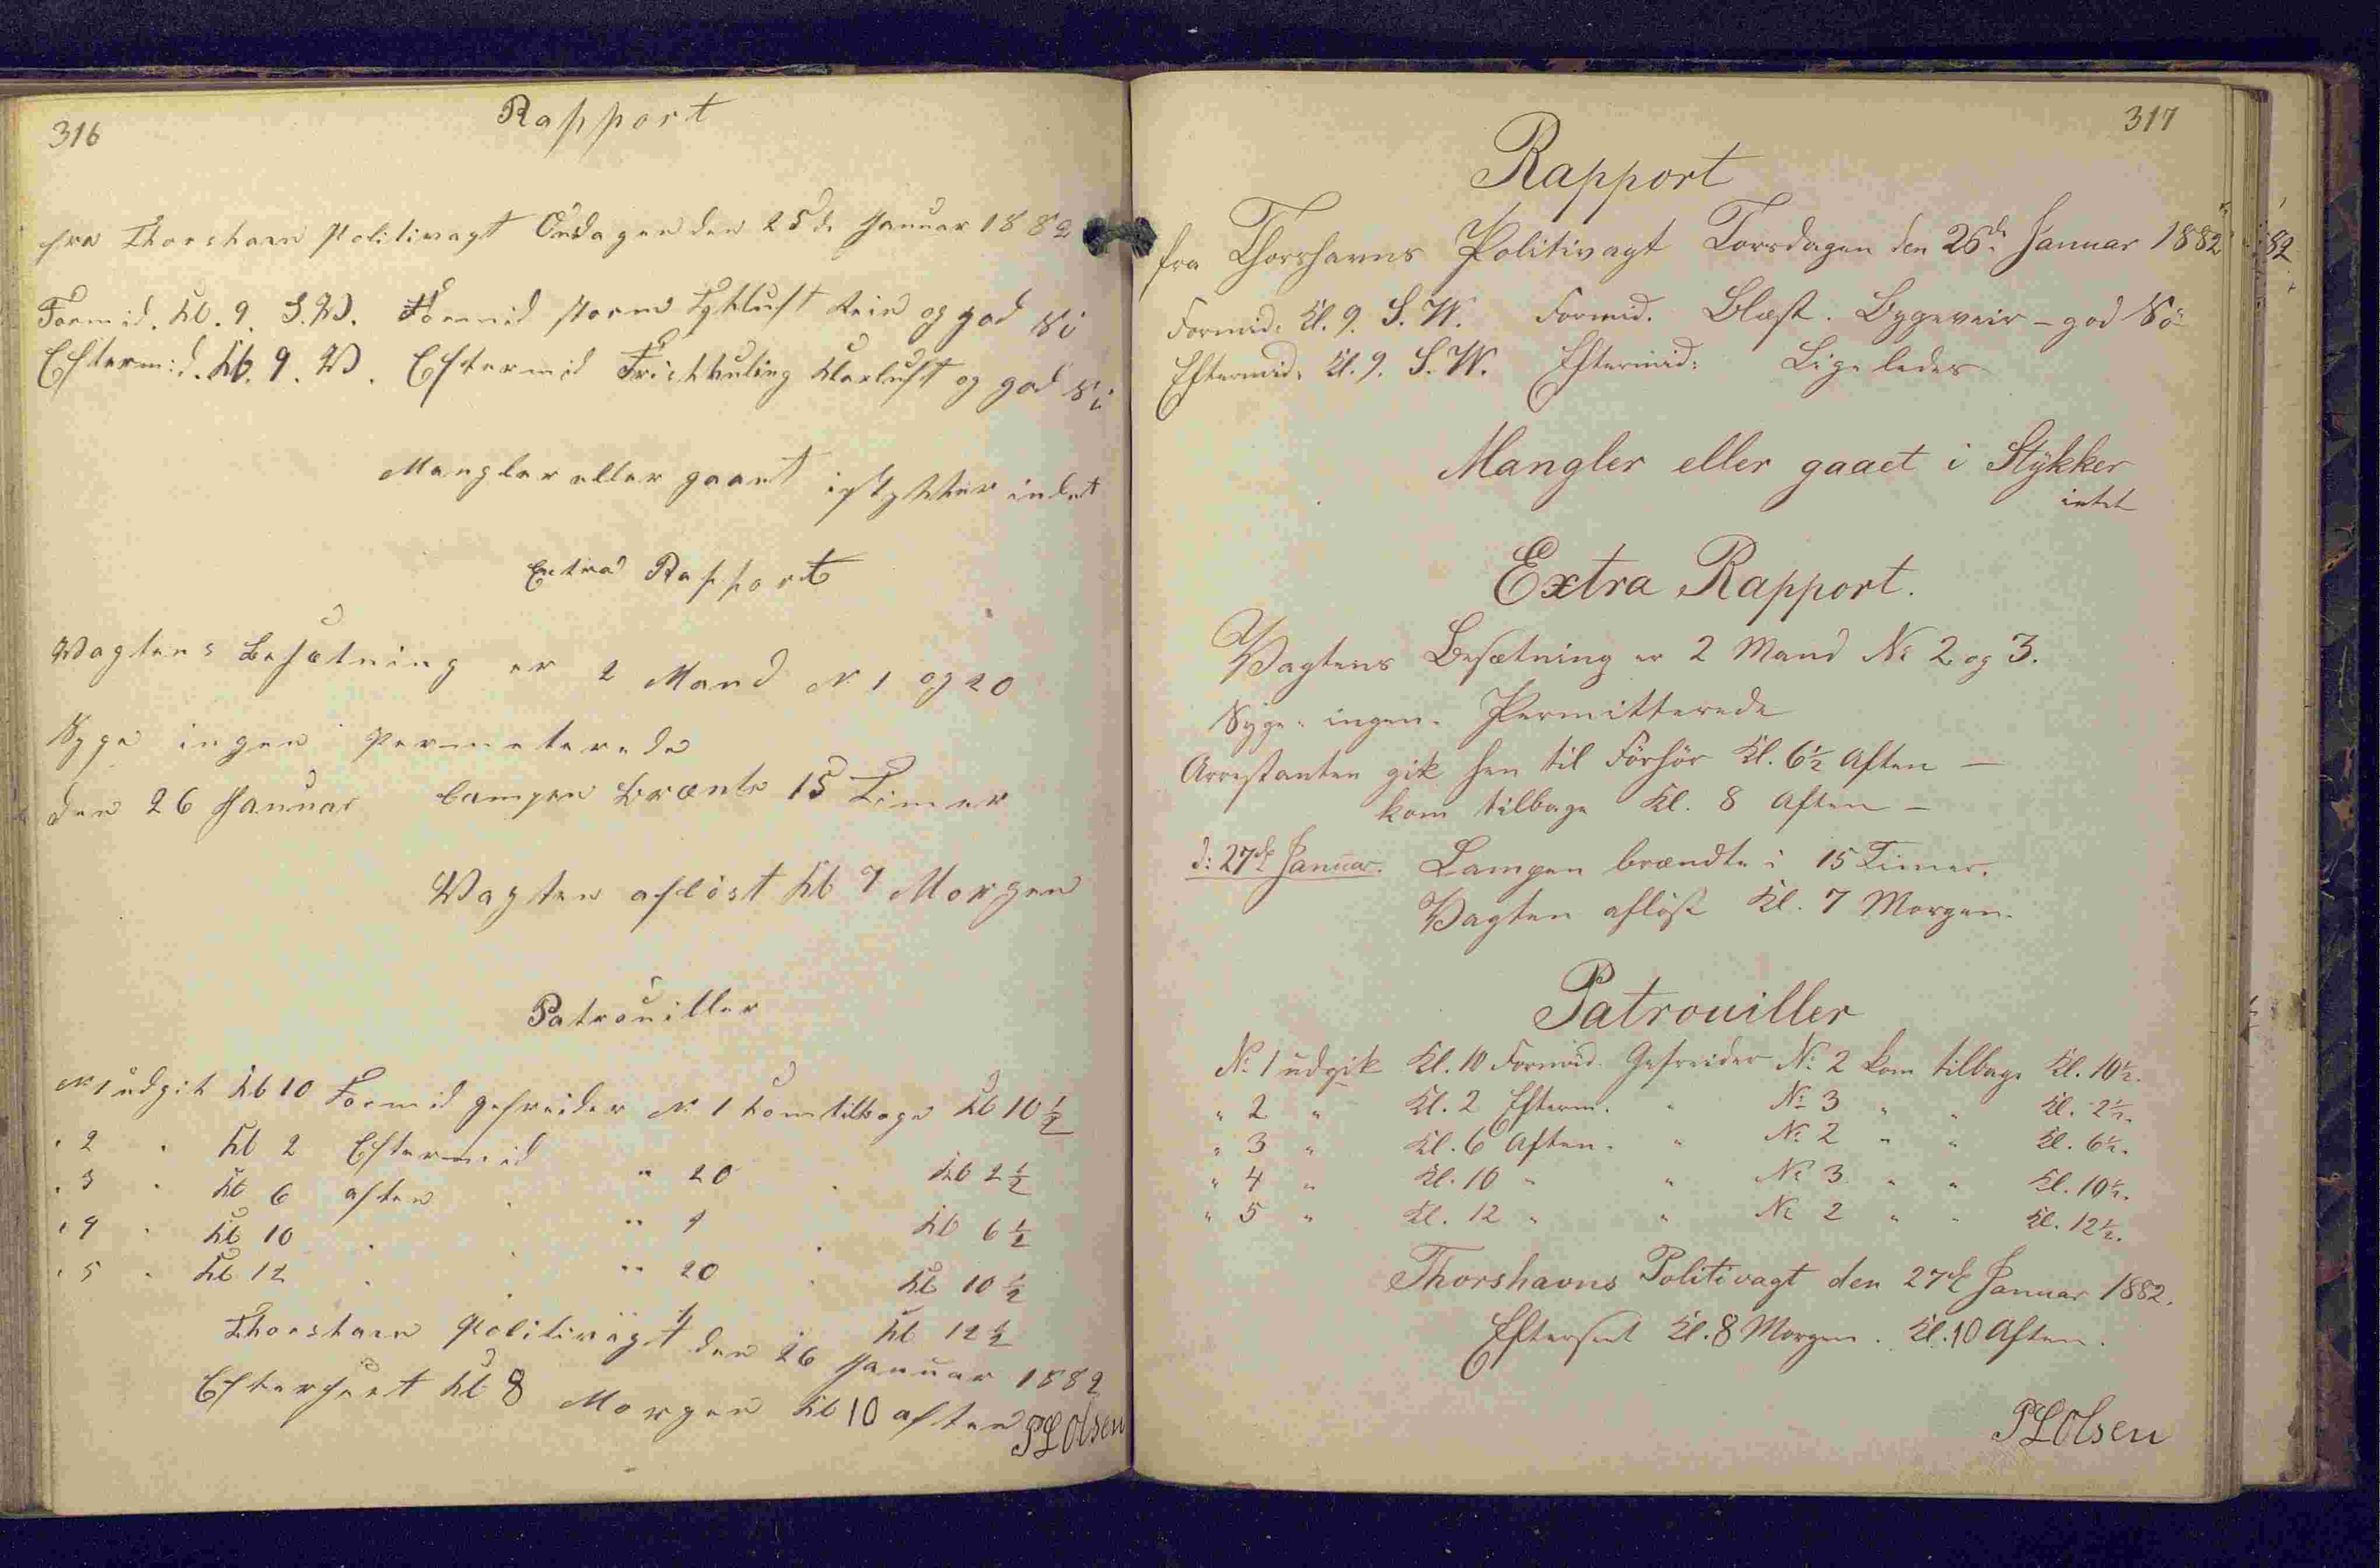 316
Rapport
fra Thorshavn Politivagt Onsdagen den 25de Januar 1882
Formid. Kl. 9. S.W. Formid storm Tykluft Rein og god Si
Eftermid. Kl. 9. W. Eftermid Friskkuling Klarluft og god Si
Mangler eller gaaet istykker indet
Extra Rapport
Wagtens Besætning er 2 Mand N 1 og 20
Syge ingen Permeterede
den 26 Januar Lampen brænte 15 Timer
Wagten afløst Kl 7 Morgen
Patrouiller
N 1 udgik Kl 10 Formid gefreider N 1 kom tilbage Kl 10 1/2
" 2 " Kl 2 Eftermid " 20 " Kl 2 1/2
" 3 " Kl 6 aften " " 1 Kl 6 1/2
" 4 " Kl 10 " " " 20 " Kl 10 1/2
" 5 " Kl 12 " " " 1 " Kl 12 1/2
Thorshavn Politivagt den 26 Januar 1882
Efterseet Kl 8 Morgen Kl 10 aften
PLOlsen
317
Rapport
fra Thorshavns Politivagt Torsdagen den 26de Januar 1882
Formid: Kl. 9. S. W. Formid. Blæst. Bygeveir - god Sö
Eftermid: Kl. 9. S. W. Eftermid: Ligeledes
Mangler eller gaaet i Stykker
intet
Extra Rapport.
Vagtens Besætning er 2 Mand No 2 og 3.
Syge: ingen. Permitterede
Arrestanten gik hen til Förhör Kl. 6 1/2 Aften —
kom tilbage Kl. 8 Aften —
d: 27de Januar. Lampen brændte i 15 Timer.
Vagten aflöst Kl. 7 Morgen.
Patrouiller
No 1 udgik Kl. 10 Formid. Gefreider No 2 kom tilbage Kl. 10 1/2.
" 2 " Kl. 2 Efterm. " No 3 " " Kl. 2 1/2.
" 3 " Kl. 6 Aften. " No 2 " " Kl. 6 1/2.
" 4 " Kl. 10 " " No 3 " " Kl. 10 1/2.
" 5 " Kl. 12 " " No 2 " " Kl. 12 1/2.
Thorshavns Politivagt den 27de Januar 1882.
Efterseet Kl. 8 Morgen. Kl. 10 Aften.
PLOlsen
82